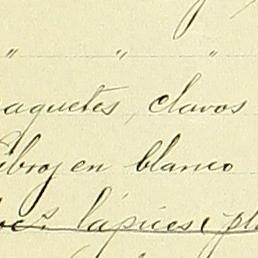 " " "
aquetes, clavos
libros en blanco
lápices